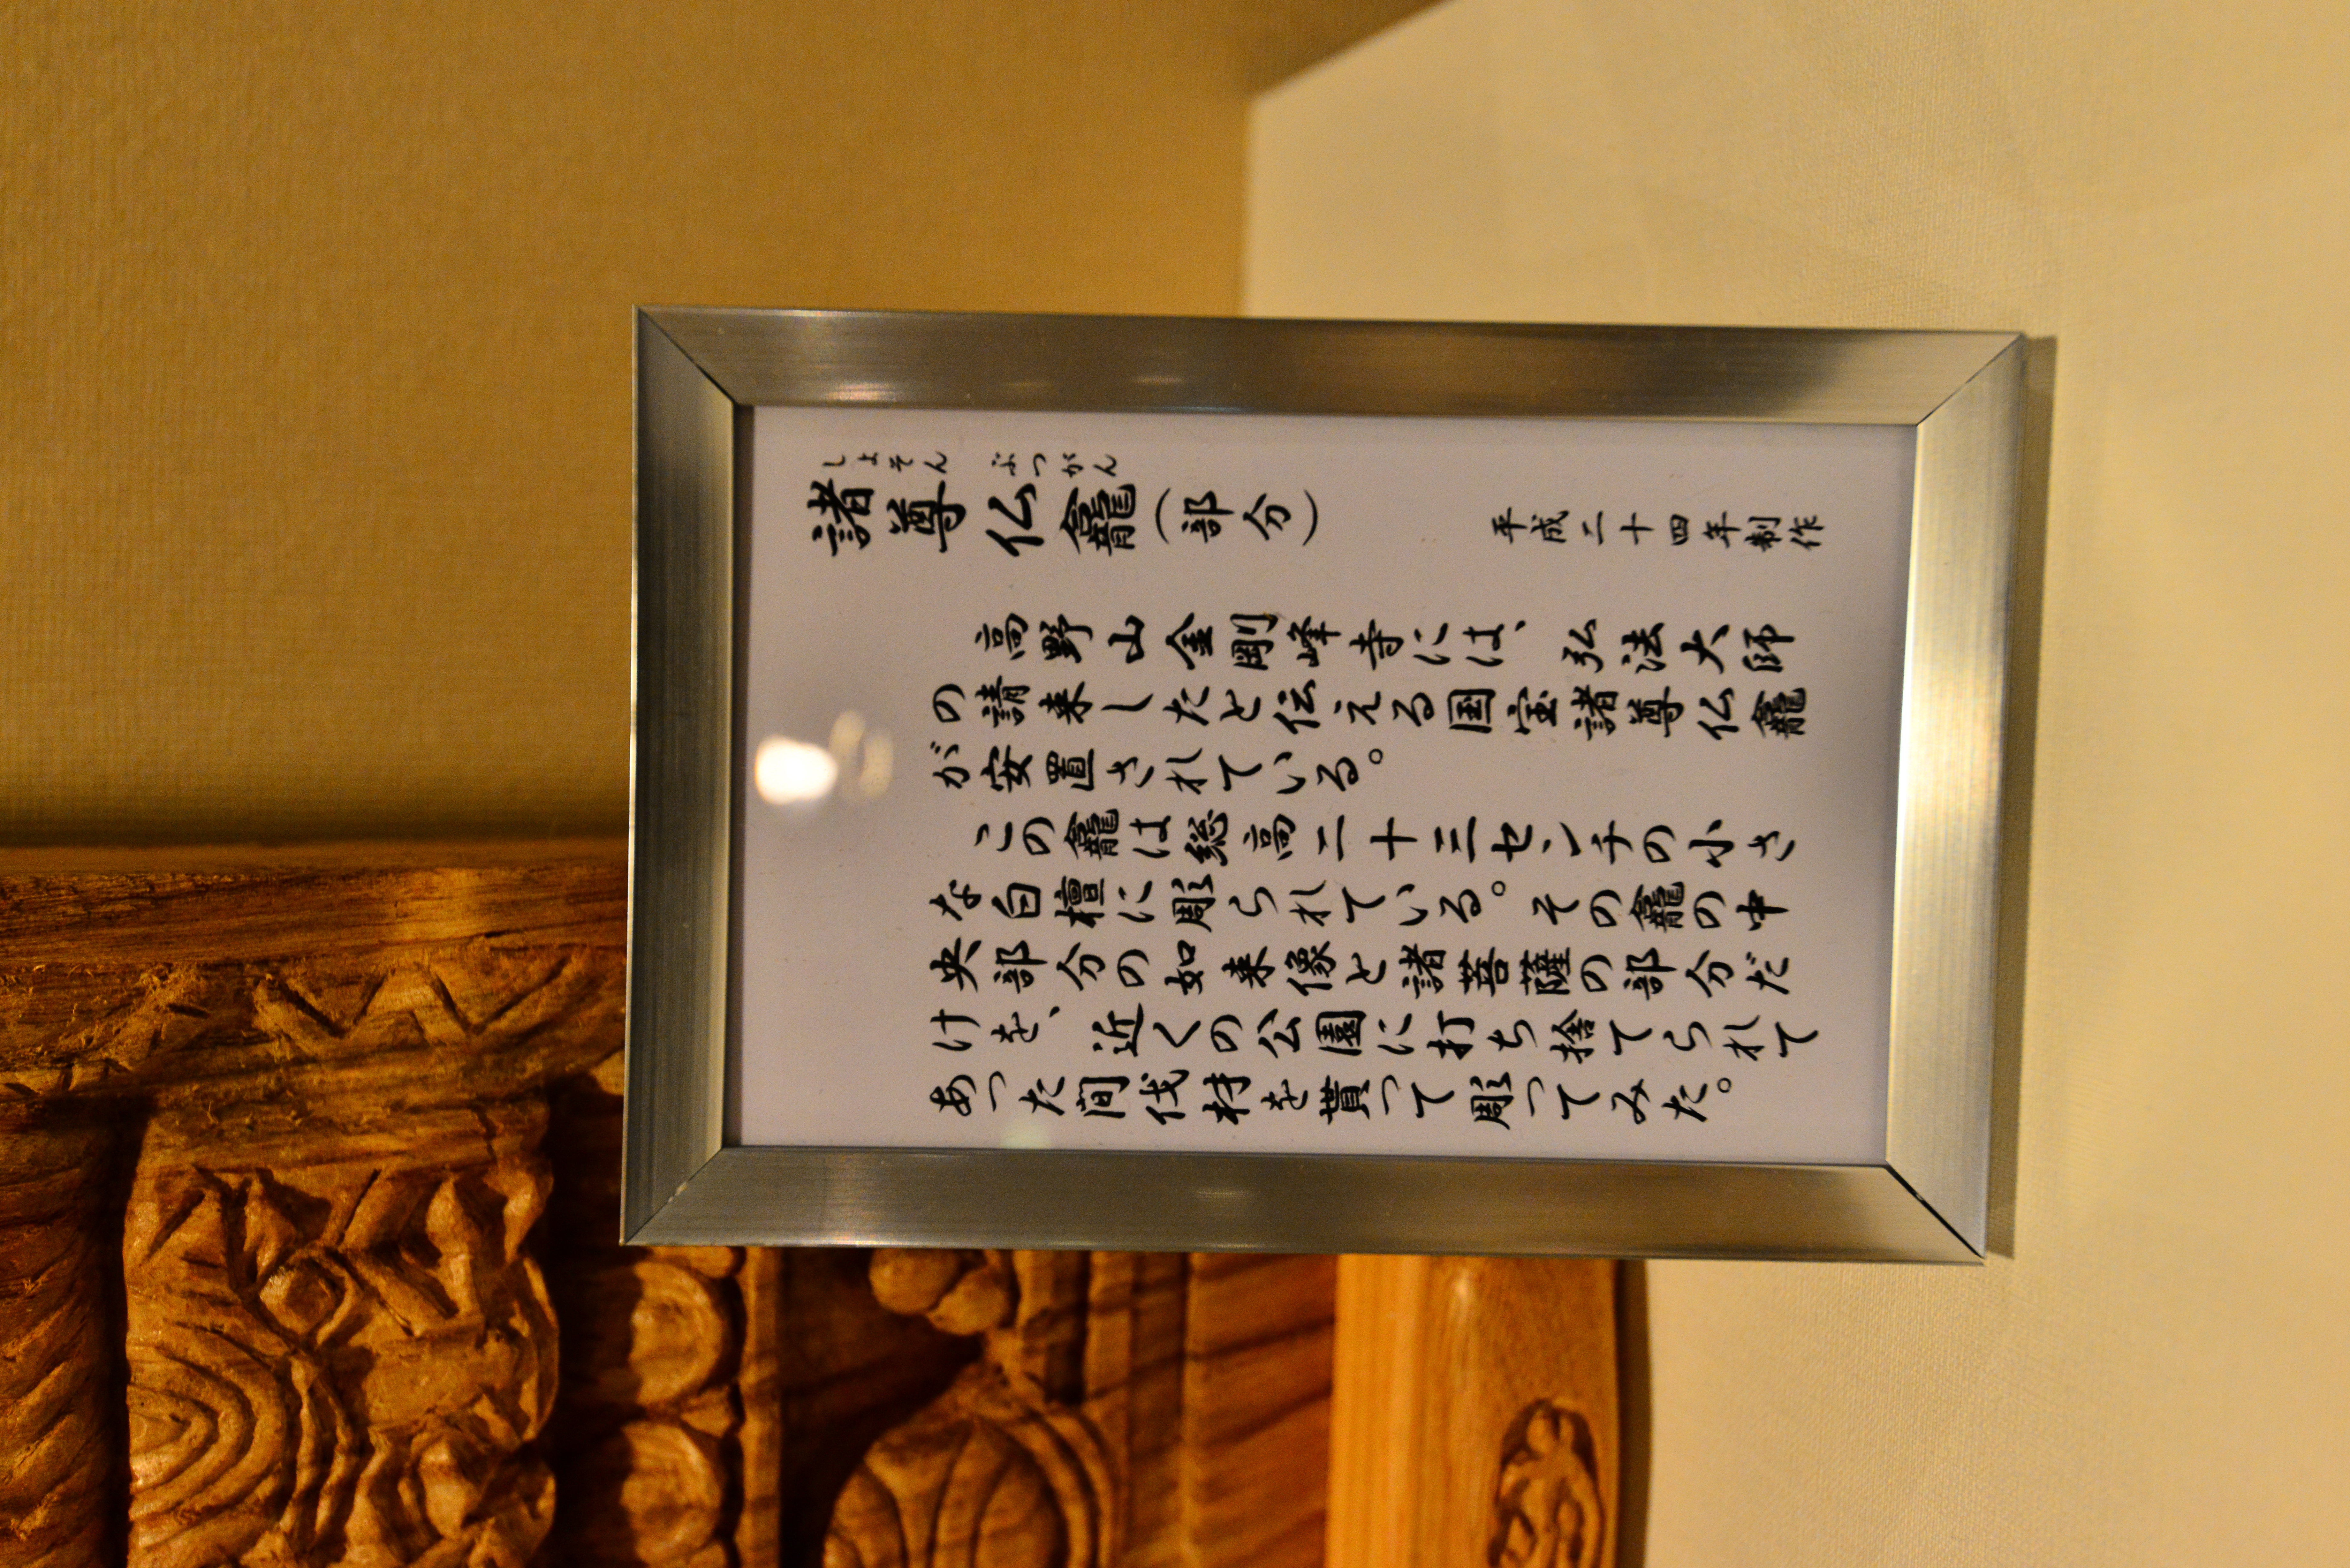 しょそん ぶつがん
諸尊仏龕(部分)
平成二十四年制作
高野山金剛峰寺には、弘法大師
の請来したと伝える国宝諸尊仏龕
が安置されている。
この龕は総高二十三センチの小さ
な白檀に彫られている。その龕の中
央部分の如来像と諸菩薩の部分だ
けを、近くの公園に打ち捨てられて
あった間伐材を貰って彫ってみた。